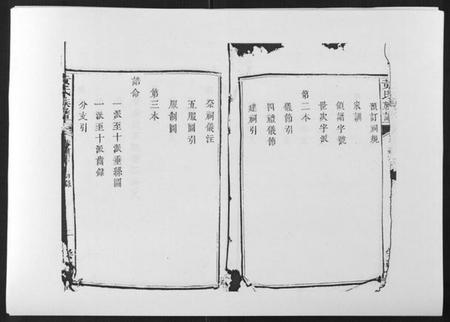 黃氏族譜
預訂祠規
家訓
領譜字號
世次字派
第二本
儀飾引
四禮儀飾
建祠引
祭祠儀注
五服圖引
服制圖
第三本
誥命
一派至十派垂絲圖
一派至十派齒錄
分支引